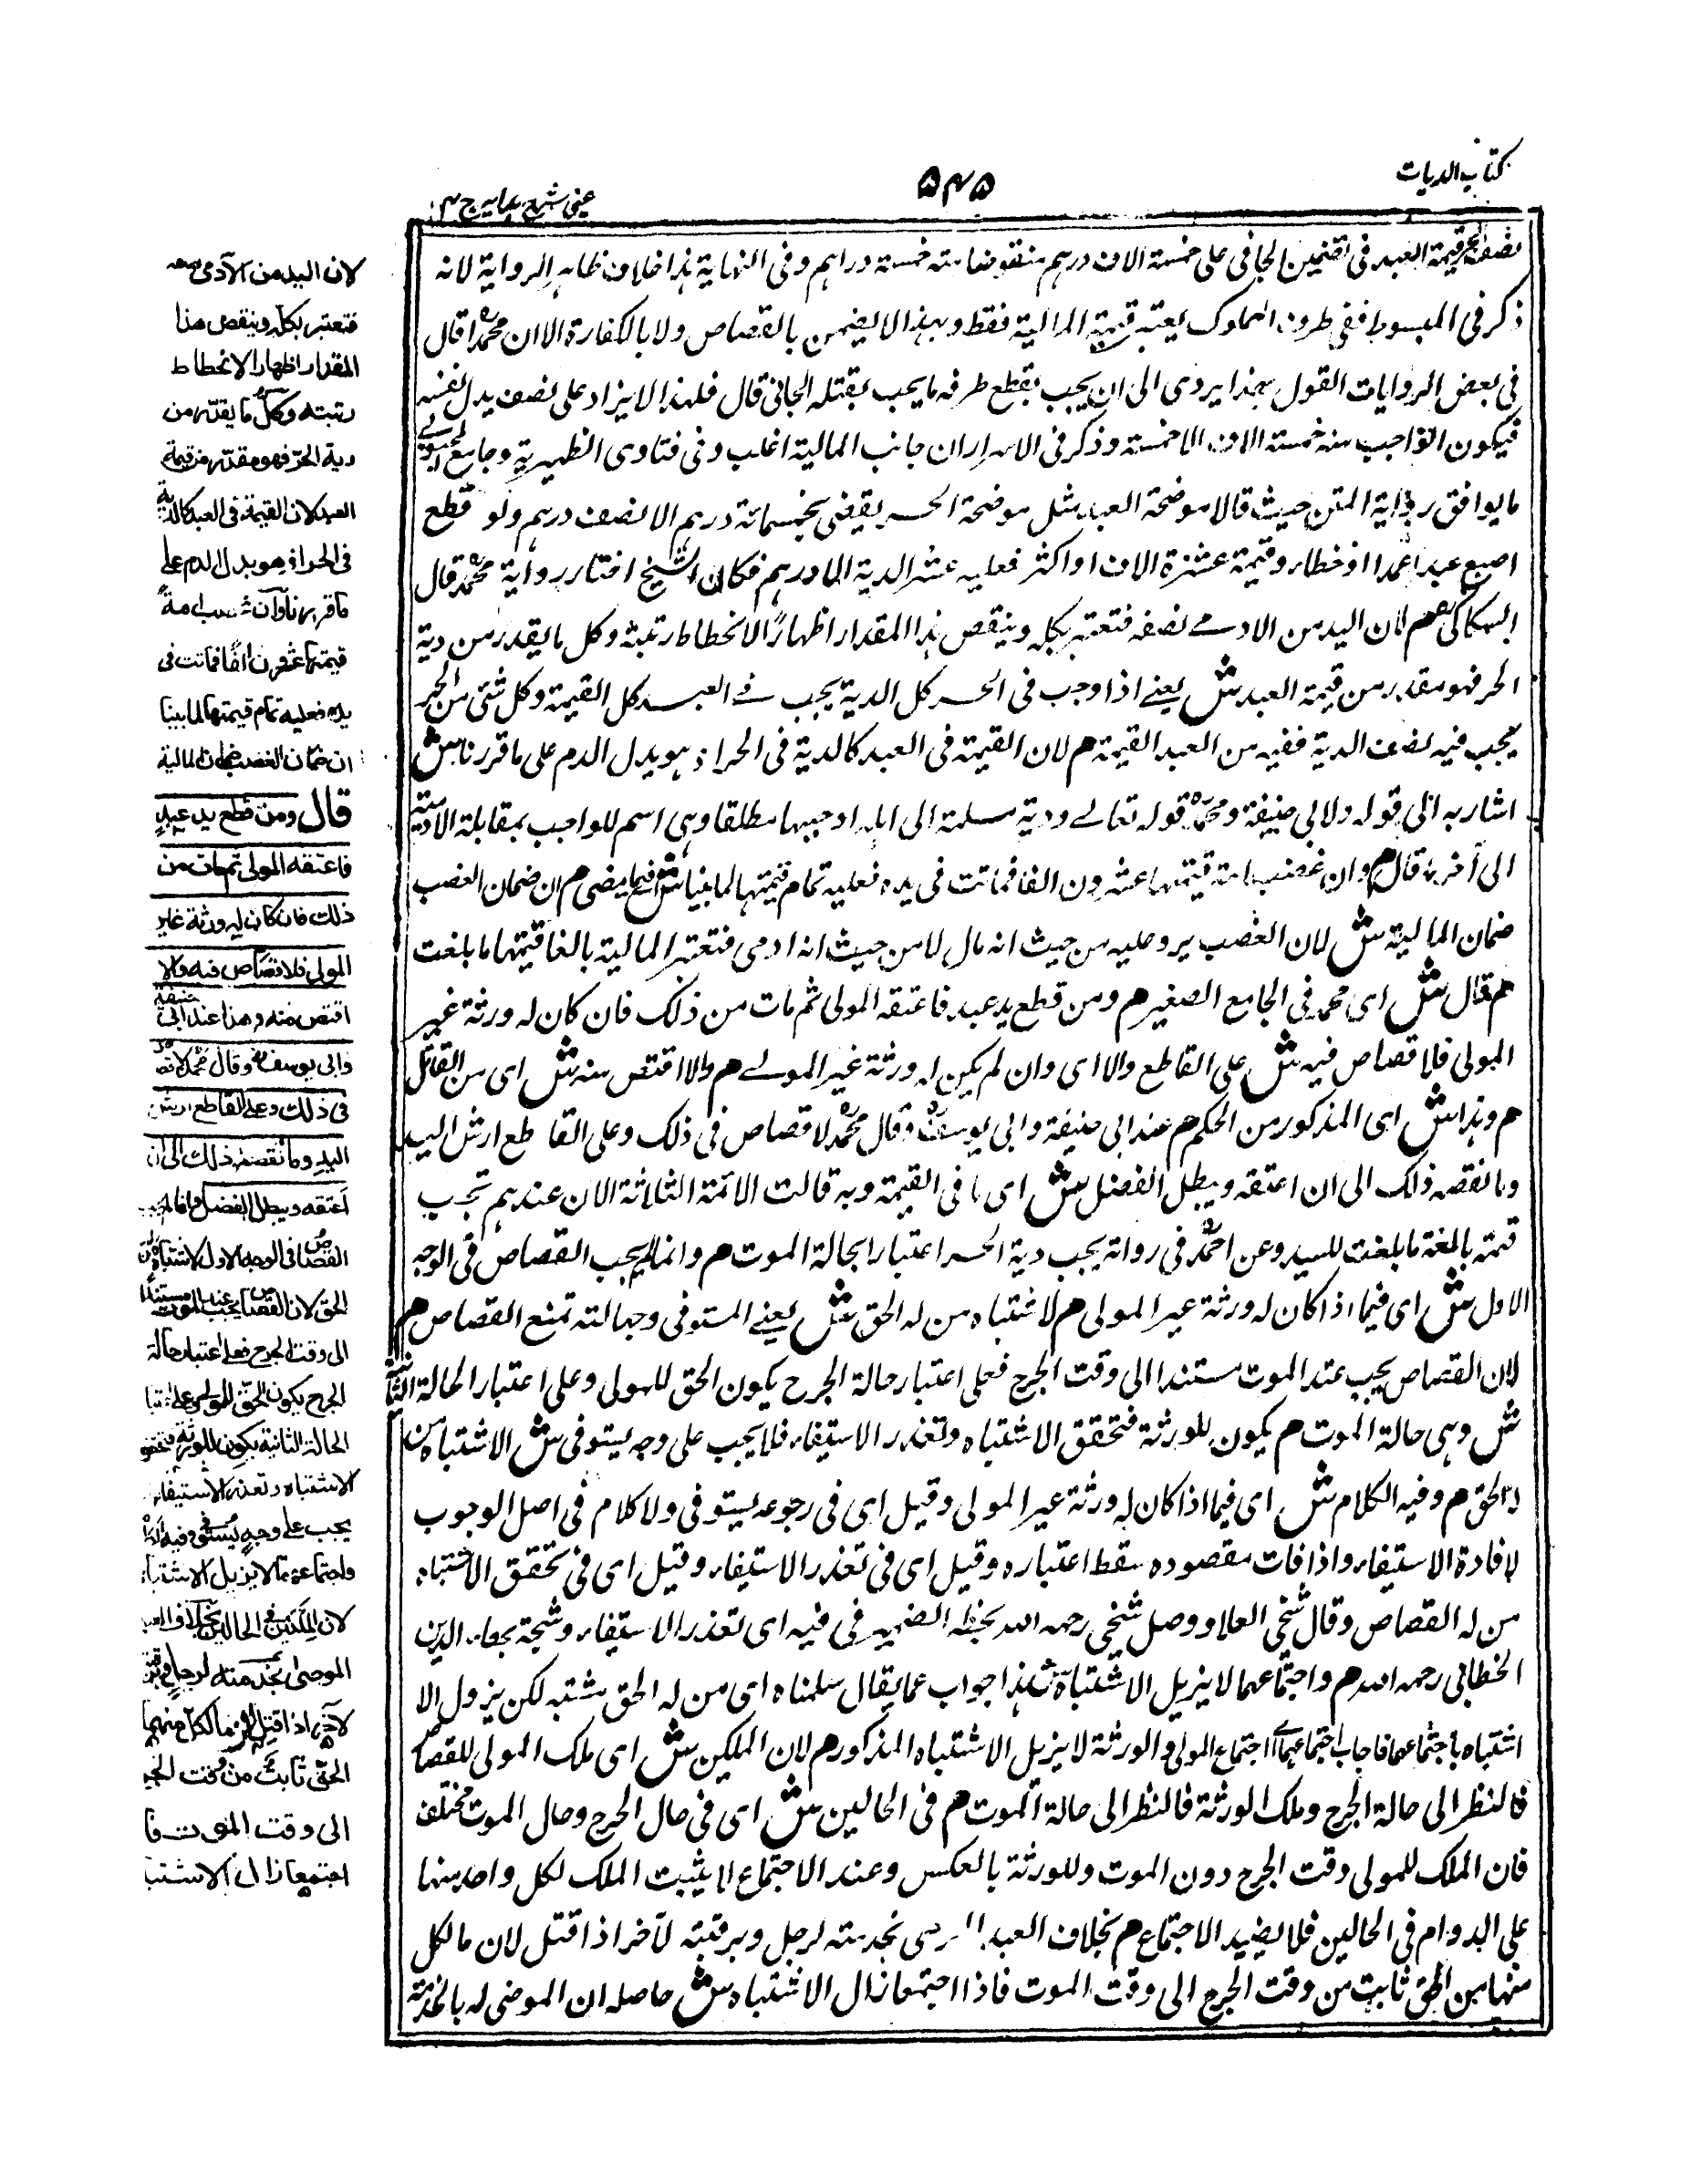 كتاب الديات
۵۴۵
عینی شرح ہدایہ ج ۴
نصف قيمة العبد فى تضمين الجانى على خمسة الاف درهم منقوضا منه خمسة دراهم وفى النهاية هذا خلاف ظاهر الرواية لانه
ذكر فى المبسوط ففى طرف المملوك يعتبر قيمة المالية فقط وبهذا لا يضمن بالقصاص ولا بالكفارة الا ان محمدا قال
فى بعض الروايات القول بهذا يردى الى ان يجب بقطع طرفه ما يجب بقتله الجانى قال فلهذا لا يزاد على نصف بدل نفسه
فيكون الواجب منه خمسة الاف الا خمسة وذكر فى الاسرار ان جانب المالية اغلب وفى فتاوى الظهيرية وجامع المحبوبى
ما يوافق رواية المتن حيث قالا موضحة العبد مثل موضحة الحر يقضى بخمسمائة درهم الا نصف درهم ولو قطع
اصبع عبد عمدا او خطاء وقيمة عشرة الاف او اكثر فعليه عشر الدية الا درهم فكان الشيخ اختار رواية محمد قال
السكاكى هم لان اليد من الادمى نصفه فتعتبر بكله وينقص هذا المقدار اظهارًا لانحطاط رتبته وكل ما يقدر من دية
الحر فهو مقدر من قيمة العبد ش يعنى اذا وجب فى الحر كل الدية يجب فى العبد كل القيمة وكل شئ من الحر
يجب فيه نصف الدية ففيه من العبد القيمة هم لان القيمة فى العبد كالدية فى الحر اذ هو بدل الدم على ما قررنا ش
اشار به الى قوله ولابى حنيفة ومحمد قوله تعالى ودية مسلمة الى اهله اوجبها مطلقا وهى اسم للواجب بمقابلة الادمية
الى آخره قال هم وان غصب امة قيمتها عشرون الفا فماتت فى يده فعليه تمام قيمتها لما بينا ش فيما مضى هم ان ضمان الغصب
ضمان المالية ش لان الغصب يرد عليه من حيث انه مال لا من حيث انه ادمى فتعتبر المالية بالغا قيمتها ما بلغت
هم قال ش اى محمد فى الجامع الصغير هم ومن قطع يد عبد فاعتقه المولى ثم مات من ذلك فان كان له ورثة غير
المولى فلا قصاص فيه ش على القاطع والا اى وان لم يكن له ورثة غير المولى هم والا اقتص منه ش اى من القاتل
هم وهذا ش اى المذكور من الحكم هم عند ابى حنيفة وابى يوسف وقال محمد لا قصاص فى ذلك وعلى القاطع ارش اليد
وما نقصه ذلك الى ان اعتقه ويبطل الفضل ش اى ما فى القيمة وبه قالت الائمة الثلاثة الا ان عندهم تجب
قيمته بالغة ما بلغت للسيد وعن احمد فى رواية يجب دية الحر اعتبارا بحالة الموت هم وانما لم يجب القصاص فى الوجه
الاول ش اى فيما اذا كان له ورثة غير المولى هم لاشتباه من له الحق ش يعنى المستوفى وجهالته تمنع القصاص هم
لان القصاص يجب عند الموت مستندا الى وقت الجرح فعلى اعتبار حالة الجرح يكون الحق للمولى وعلى اعتبار الحالة الثانية
ش وهى حالة الموت هم يكون للورثة فتحقق الاشتباه وتعذر الاستيفاء فلا يجب على وجه يستوفى ش الاشتباه من
له الحق هم وفيه الكلام ش اى فيما اذا كان له ورثة غير المولى وقيل اى فى رجوعه يستوفى ولا كلام فى اصل الوجوب
لافادة الاستيفاء واذا فات مقصوده سقط اعتباره وقيل اى فى تعذر الاستيفاء وقيل اى فى تحقق الاشتباه
من له القصاص وقال شيخى العلاء وصل شيخى رحمه الله بخطه الضمير فى فيه اى تعذر الاستيفاء وشيخه الدين
الخطابى رحمه الله هم واجتماعهما لا يزيل الاشتباه ش هذا جواب عما يقال سلمناه اى من له الحق مشتبه لكن يزول الا
اشتباه باجتماعهما فاجاب اجتماعهما اى اجتماع المولى والورثة لا يزيل الاشتباه المذكور هم لان الملكين ش اى ملك المولى للقصاص
فالنظر الى حالة الجرح وملك الورثة فالنظر الى حالة الموت هم فى الحالين ش اى فى حال الجرح وحال الموت مختلف
فان الملك للمولى وقت الجرح دون الموت وللورثة بالعكس وعند الاجتماع لا يثبت الملك لكل واحد منهما
على الدوام فى الحالين فلا يفيد الاجتماع هم بخلاف العبد الموصى بخدمته لرجل وبرقبته لآخر اذا قتل لان ما لكل
منهما من الحق ثابت من وقت الجرح الى وقت الموت فاذا اجتمعا زال الاشتباه ش حاصله ان الموصى له بالخدمة
لان اليد من الآدمى نصفه
فتعتبر بكله وينقص هذا
المقدار اظهارا لانحطاط
رتبته وكل ما يقدر من
دية الحر فهو مقدر من قيمة
العبد لان القيمة فى العبد كالدية
فى الحر اذ هو بدل الدم على
ما قررناه وان غصب امة
قيمتها عشرون الفا فماتت فى
يده فعليه تمام قيمتها لما بينا
ان ضمان الغصب ضمان المالية
قال ومن قطع يد عبد
فاعتقه المولى ثم مات من
ذلك فان كان له ورثة غير
المولى فلا قصاص فيه والا
اقتص منه وهذا عند ابى حنيفة
وابى يوسف وقال محمد لا قصاص
فى ذلك وعلى القاطع ارش
اليد وما نقصه ذلك الى ان
اعتقه ويبطل الفضل وانما لم يجب
القصاص فى الوجه الاول لاشتباه من له
الحق لان القصاص يجب عند الموت مستندا
الى وقت الجرح فعلى اعتبار حالة
الجرح يكون الحق للمولى وعلى اعتبار
الحالة الثانية يكون للورثة فتحقق
الاشتباه وتعذر الاستيفاء
يجب على وجه يستوفى وفيه الكلام
واجتماعهما لا يزيل الاشتباه
لان الملكين فى الحالين بخلاف العبد
الموصى بخدمته لرجل وبرقبته
لآخر اذا قتل لان ما لكل منهما
الحق ثابت من وقت الجرح
الى وقت الموت فاذا
اجتمعا زال الاشتباه